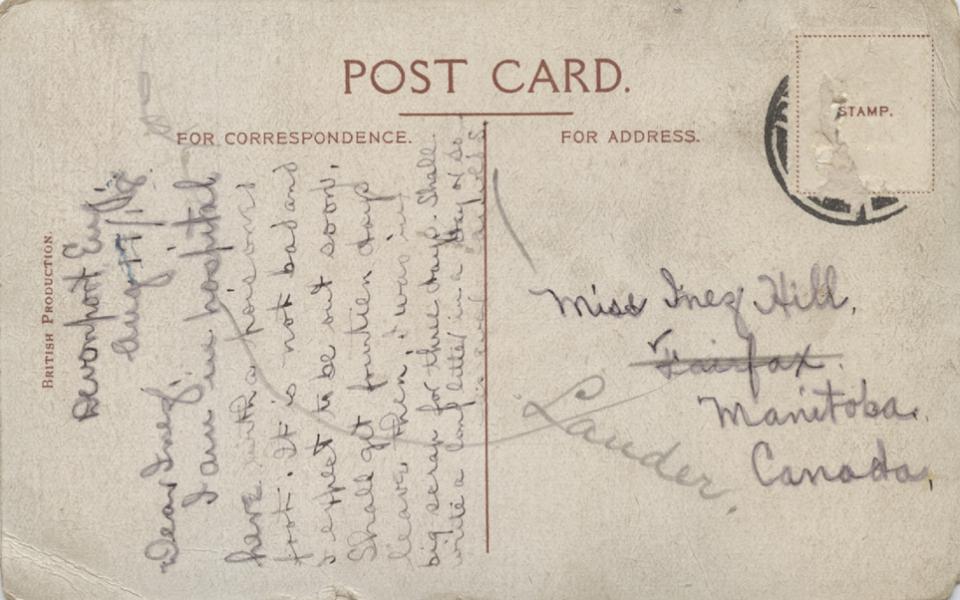 POST CARD.
FOR CORRESPONDENCE.
FOR ADDRESS.
STAMP.
BRITISH PRODUCTION.
Devonport Eng.
Aug 17/18
Dear Inez,
I am in hospital
here with a poisoned
foot. It is not bad and
I expect to be out soon.
Shall get fourteen days
leave then, I was in
big scrap for three days. Shall
write a long letter in a day or so
Miss Inez Hill,
Fairfax.
Manitoba.
Canada,
Lauder.